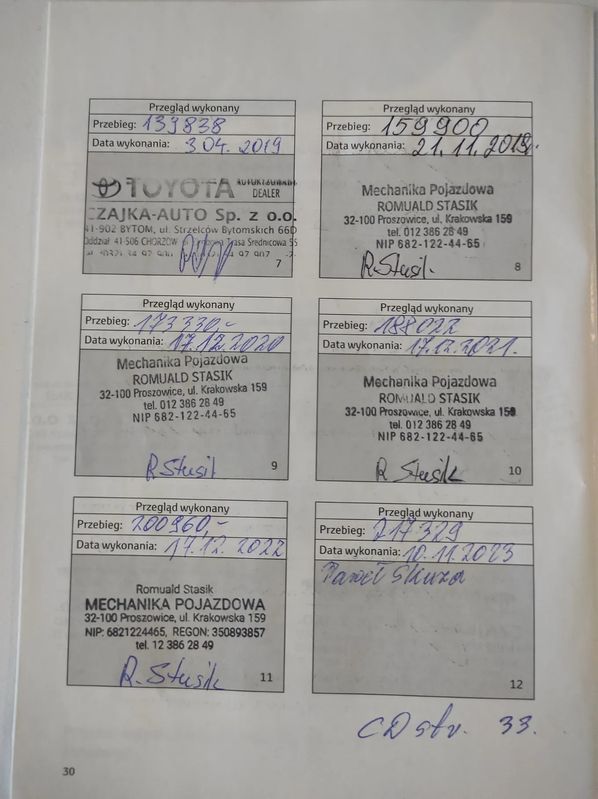 Przegląd wykonany
Przebieg: 139838
Data wykonania: 3 04. 2019
TOYOTA AUTORYZOWANY
DEALER
CZAJKA-AUTO Sp. z o.o.
41-902 BYTOM, ul. Strzelców Bytomskich 66D
Oddział 41-506 CHORZÓW Trasa Średnicowa 55
7
Przegląd wykonany
Przebieg: 159900
Data wykonania: 21.11.2019.
Mechanika Pojazdowa
ROMUALD STASIK
32-100 Proszowice, ul. Krakowska 159
tel. 012 386 28 49
NIP 682-122-44-65
R.Stasik
8
Przegląd wykonany
Przebieg: 173330,-
Data wykonania: 17.12.2020
Mechanika Pojazdowa
ROMUALD STASIK
32-100 Proszowice, ul. Krakowska 159
tel. 012 386 28 49
NIP 682-122-44-65
R.Stasik
9
Przegląd wykonany
Przebieg: 188022
Data wykonania: 17.12.2021.
Mechanika Pojazdowa
ROMUALD STASIK
32-100 Proszowice, ul. Krakowska 159
tel. 012 386 28 49
NIP 682-122-44-65
R.Stasik
10
Przegląd wykonany
Przebieg: 200960,-
Data wykonania: 17.12.2022
Romuald Stasik
MECHANIKA POJAZDOWA
32-100 Proszowice, ul. Krakowska 159
NIP: 6821224465, REGON: 350893857
tel. 12 386 28 49
R.Stasik
11
Przegląd wykonany
Przebieg: 217329
Data wykonania: 10.11.2023
Paweł Skuza
12
CD str. 33.
30